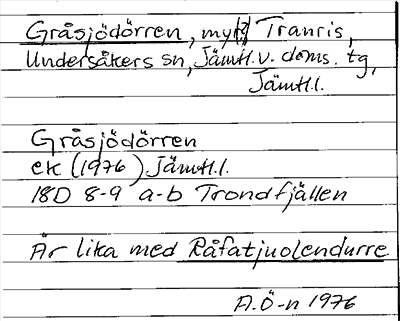 Gråsjödörren, myr, Tranris,
Undersåkers sn, Jämtl. v. doms. tg,
Jämtl.l.
Gråsjödörren
ek (1976) Jämtl.l.
18D 8-9 a-b Trondfjällen
Är lika med Råfatjuolendurre
A.Ö-n 1976